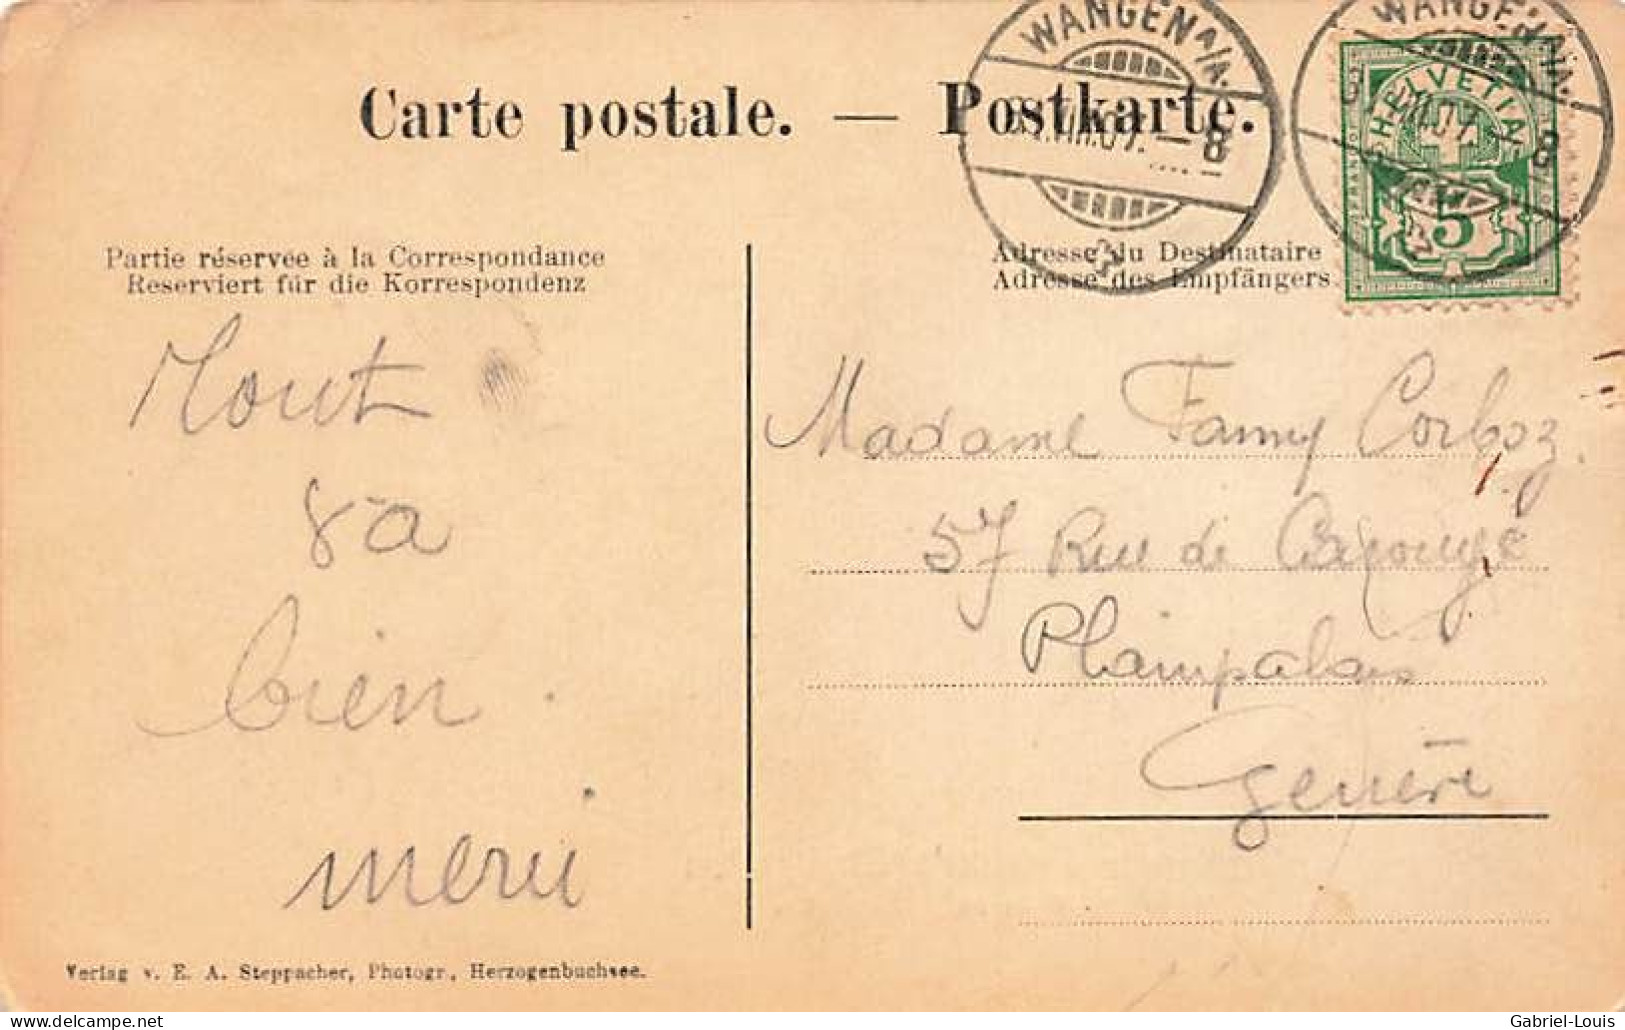 Carte postale. — Postkarte.
WANGEN A/A.
VIII.07. — 8
WANGEN A/A.
VIII.07. — 8
HELVETIA
5
Partie réservée à la Correspondance
Reserviert für die Korrespondenz
Adresse du Destinataire
Adresse des Empfängers
Tout
va
bien
merci
Madame Fanny Corboz
57 Rue de Carouge
Plainpalais
Genève
Verlag v. E. A. Steppacher, Photogr., Herzogenbuchsee.
Gabriel-Louis